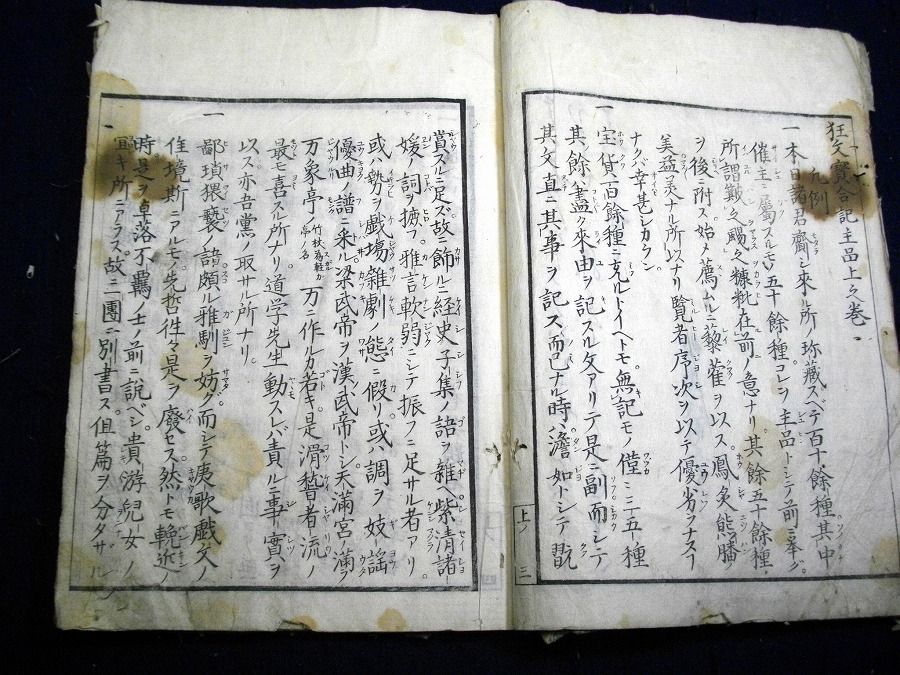 狂文寳合記主品上之巻
凡例
一 本日諸君齎シ來ル所珎藏スベテ百十餘種其中
催主ニ屬スルモノ五十餘種コレヲ主品トシテ前ニ挙グ
所謂簸之颺之糠粃在前ノ意ナリ其餘五十餘種
ヲ後ニ附ス始メ薦ムルニ藜藿ヲ以ス鳳炙熊膰
美益美ナル所以ナリ覧者序次ヲ以テ優劣ヲナスコ
ナクバ幸甚シカラン
一 宝貨百餘種ニ充ルトイヘトモ無記モノ僅ニ三五種
其餘盡ク來由ヲ記スル文アリテ是ニ副而シテ
其文直ニ其事ヲ記ス而已ナル時ハ澹如トシテ翫
賞スルニ足ズ故ニ飾ルニ経史子集ノ語ヲ雜ヘ紫清諸
媛ノ詞ヲ摭フ雅言軟弱ニシテ振フニ足サル者アリ
或ハ勢ヲ戯塲雜劇ノ態ニ假リ或ハ調ヲ妓謡
優曲ノ譜ニ采ル梁武帝ヲ漢武帝トシ天滿宮ノ滿ヲ
万象亭ノ 竹杖爲軽カ亭ノ名 万ニ作ルカ若キ是滑稽者流ノ
最モ喜スル所ナリ道学先生動スレバ責ルニ事實ヲ
以ス亦吾黨ノ取サル所ナリ
一 鄙瑣猥褻ノ語頗ル雅馴ヲ妨グ而シテ庚歌戯文ノ
佳境斯ニアルモノ先哲徃々是ヲ廢セス然トモ輓近ノ
時是ヲ卓落不羈ノ士ノ前ニ説ベシ貴游兒女ノ
冝キ所ニアラス故ニ一團ニ別書ス但篇ヲ分タサル
上ノ 三